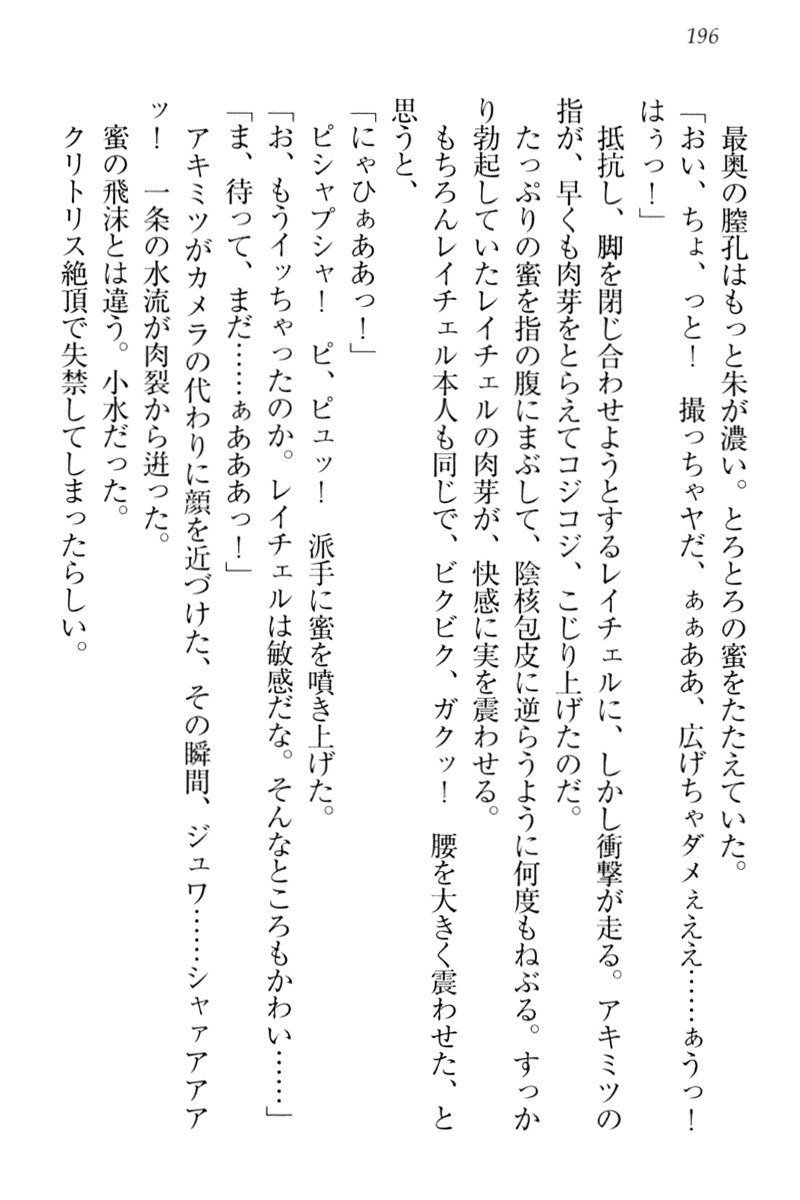 196
最奥の膣孔はもっと朱が濃い。とろとろの蜜をたたえていた。
「おい、ちょ、っと！　撮っちゃヤだ、ぁぁああ、広げちゃダメぇええ……ぁうっ！
はぅっ！」
抵抗し、脚を閉じ合わせようとするレイチェルに、しかし衝撃が走る。アキミツの
指が、早くも肉芽をとらえてコジコジ、こじり上げたのだ。
たっぷりの蜜を指の腹にまぶして、陰核包皮に逆らうように何度もねぶる。すっか
り勃起していたレイチェルの肉芽が、快感に実を震わせる。
もちろんレイチェル本人も同じで、ビクビク、ガクッ！　腰を大きく震わせた、と
思うと、
「にゃひぁああっ！」
ピシャプシャ！　ピ、ピュッ！　派手に蜜を噴き上げた。
「お、もうイッちゃったのか。レイチェルは敏感だな。そんなところもかわい……」
「ま、待って、まだ……ぁあああっ！」
アキミツがカメラの代わりに顔を近づけた、その瞬間、ジュワ……シャァアアア
ッ！　一条の水流が肉裂から迸った。
蜜の飛沫とは違う。小水だった。
クリトリス絶頂で失禁してしまったらしい。